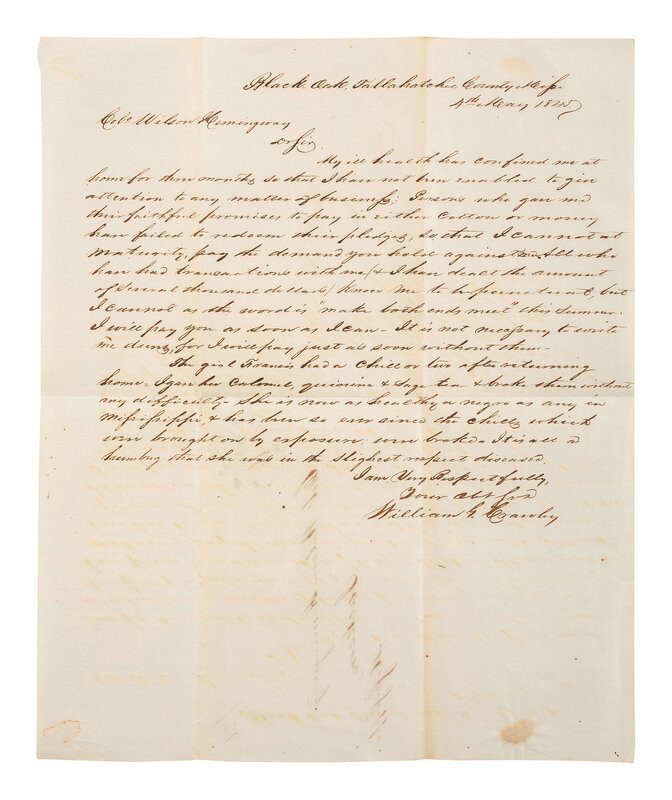 Black Oak, Tallahatchie County Missi
4th May 1845
Colo. Wilson Hemingway
Dr Sir
My ill health has confined me at
home for three months, so that I have not been enabled to give
attention to any matter of business: Persons who gave me
their faithful promises to pay in either cotton or money
have failed to redeem their pledges, so that I cannot at
maturity, pay the demand you hold against me. All who
have had transactions with me (& I have dealt the amount
of several thousand dollars) know me to be punctual, but
I cannot as the word is "make both ends meet" this summer.
I will pay you as soon as I can - It is not necessary to write
me duns, for I will pay just as soon without them -
The girl Frances had a chill or two after returning
home - I gave her Calomel, quinine & Sage tea & broke them without
any difficulty - She is now as healthy a negro as any in
Mississippi, & has been so ever since the chills which
were brought on by exposure were broke - It is all a
humbug that she was in the slighest respect diseased.
I am, Very Respectfully,
Your obt Svt
William G. Crawley